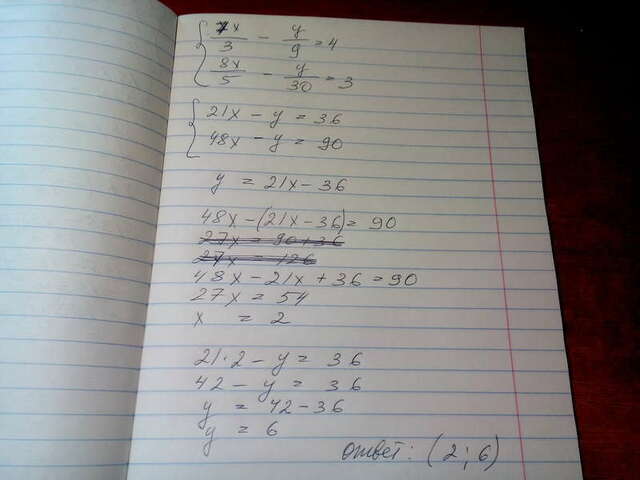 7x/3 - y/9 = 4
8x/5 - y/30 = 3
21x - y = 36
48x - y = 90
y = 21x - 36
48x - (21x - 36) = 90
27x = 90 + 36
27x = 126
48x - 21x + 36 = 90
27x = 54
x = 2
21·2 - y = 36
42 - y = 36
y = 42 - 36
y = 6
ответ: (2; 6)